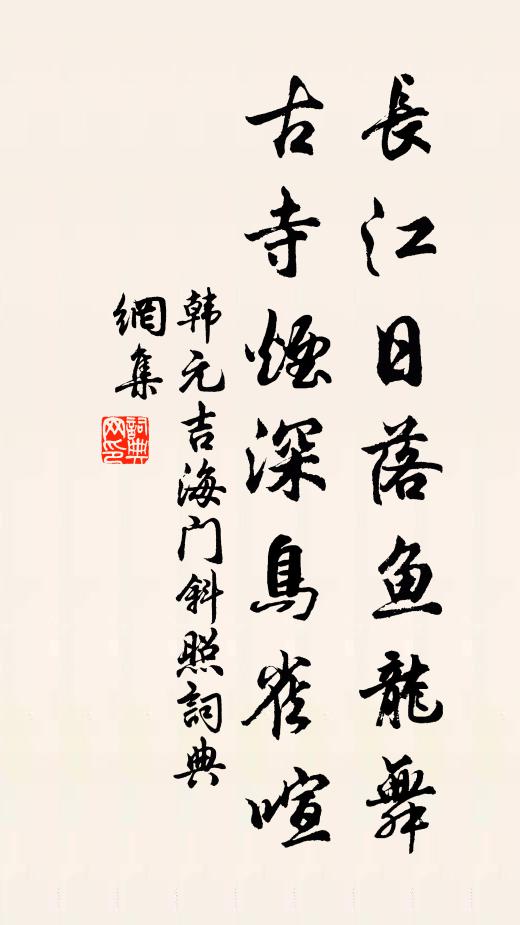 長江日落魚龍舞
古寺煙深鳥雀喧
韩元吉海门斜照詞典
網集
詞典
网印